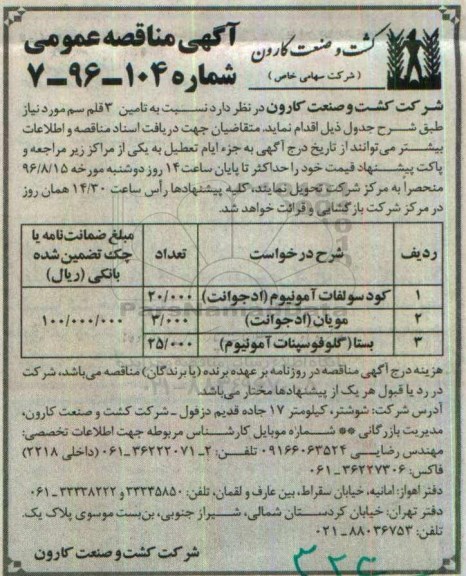 کشت و صنعت کارون
( شرکت سهامی خاص )
آگهی مناقصه عمومی
شماره ۱۰۴-۹۶-۷
شرکت کشت و صنعت کارون در نظر دارد نسبت به تامین ۳ قلم سم مورد نیاز
طبق شرح جدول ذیل اقدام نماید. متقاضیان جهت دریافت اسناد مناقصه و اطلاعات
بیشتر می‌توانند از تاریخ درج آگهی به جزء ایام تعطیل به یکی از مراکز زیر مراجعه و
پاکت پیشنهاد قیمت خود را حداکثر تا پایان ساعت ۱۴ روز دوشنبه مورخه ۹۶/۸/۱۵
منحصرا به مرکز شرکت تحویل نمایند، کلیه پیشنهادها رأس ساعت ۱۴/۳۰ همان روز
در مرکز شرکت بازگشایی و قرائت خواهد شد.
ردیف شرح درخواست تعداد مبلغ ضمانت‌نامه یا چک تضمین شده بانکی (ریال)
۱ کود سولفات آمونیوم (ادجوانت) ۲۰/۰۰۰
۲ مویان (ادجوانت) ۳/۰۰۰ ۱۰۰/۰۰۰/۰۰۰
۳ بستا (گلوفوسینات آمونیوم) ۲۵/۰۰۰
هزینه درج آگهی مناقصه در روزنامه بر عهده برنده (یا برندگان) مناقصه می‌باشد، شرکت
در رد یا قبول هر یک از پیشنهادها مختار می‌باشد.
آدرس شرکت: شوشتر، کیلومتر ۱۷ جاده قدیم دزفول - شرکت کشت و صنعت کارون،
مدیریت بازرگانی ** شماره موبایل کارشناس مربوطه جهت اطلاعات تخصصی:
مهندس رضایی ۰۹۱۶۶۰۶۳۵۲۴ تلفن: ۲-۳۶۲۲۲۰۷۱-۰۶۱ (داخلی ۲۲۱۸)
فاکس: ۳۶۲۲۷۳۰۶-۰۶۱
دفتر اهواز: امانیه، خیابان سقراط، بین عارف و لقمان، تلفن: ۳۳۲۳۵۸۵۰ و ۳۳۳۳۸۲۲۲-۰۶۱
دفتر تهران: خیابان کردستان شمالی، شیراز جنوبی، بن‌بست موسوی پلاک یک.
تلفن: ۸۸۰۳۶۷۵۳-۰۲۱
شرکت کشت و صنعت کارون